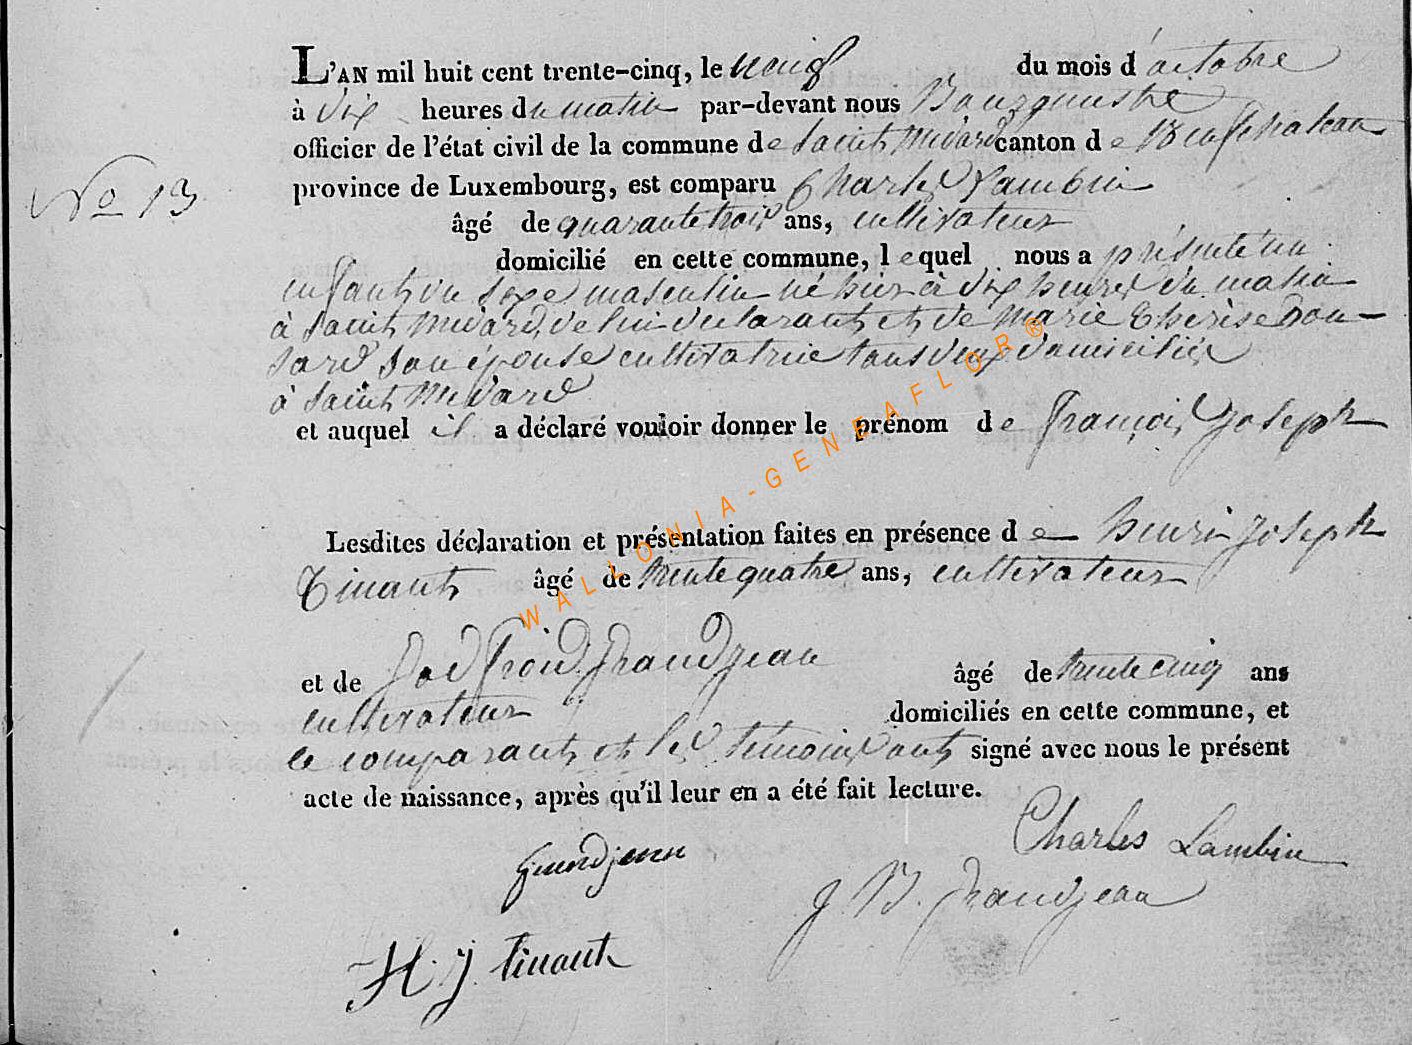 L'AN mil huit cent trente-cinq, le neuf du mois d'octobre
à dix heures du matin par-devant nous
officier de l'état civil de la commune de Saint Médard canton de Neufchateau
N° 13
province de Luxembourg, est comparu Charles Lambin
âgé de quarante trois ans, cultivateur
domicilié en cette commune, lequel nous a présenté un
enfant du sexe masculin né hier à dix heures du matin
à Saint Médard, de lui déclarant et de Marie Thérèse Don-
sard son épouse cultivatrice tous deux domiciliés
à Saint Médard
et auquel il a déclaré vouloir donner le prénom de François Joseph
Lesdites déclaration et présentation faites en présence de henri Joseph
Tinant âgé de trente quatre ans, cultivateur
et de Godfroid Grandjean âgé de trente cinq ans
cultivateur domiciliés en cette commune, et
le comparant et les témoins ont signé avec nous le présent
acte de naissance, après qu'il leur en a été fait lecture.
Charles Lambin
Grandjean
J. B. Grandjean
H. J Tinant
WALLONIA-GENEAFLOR®